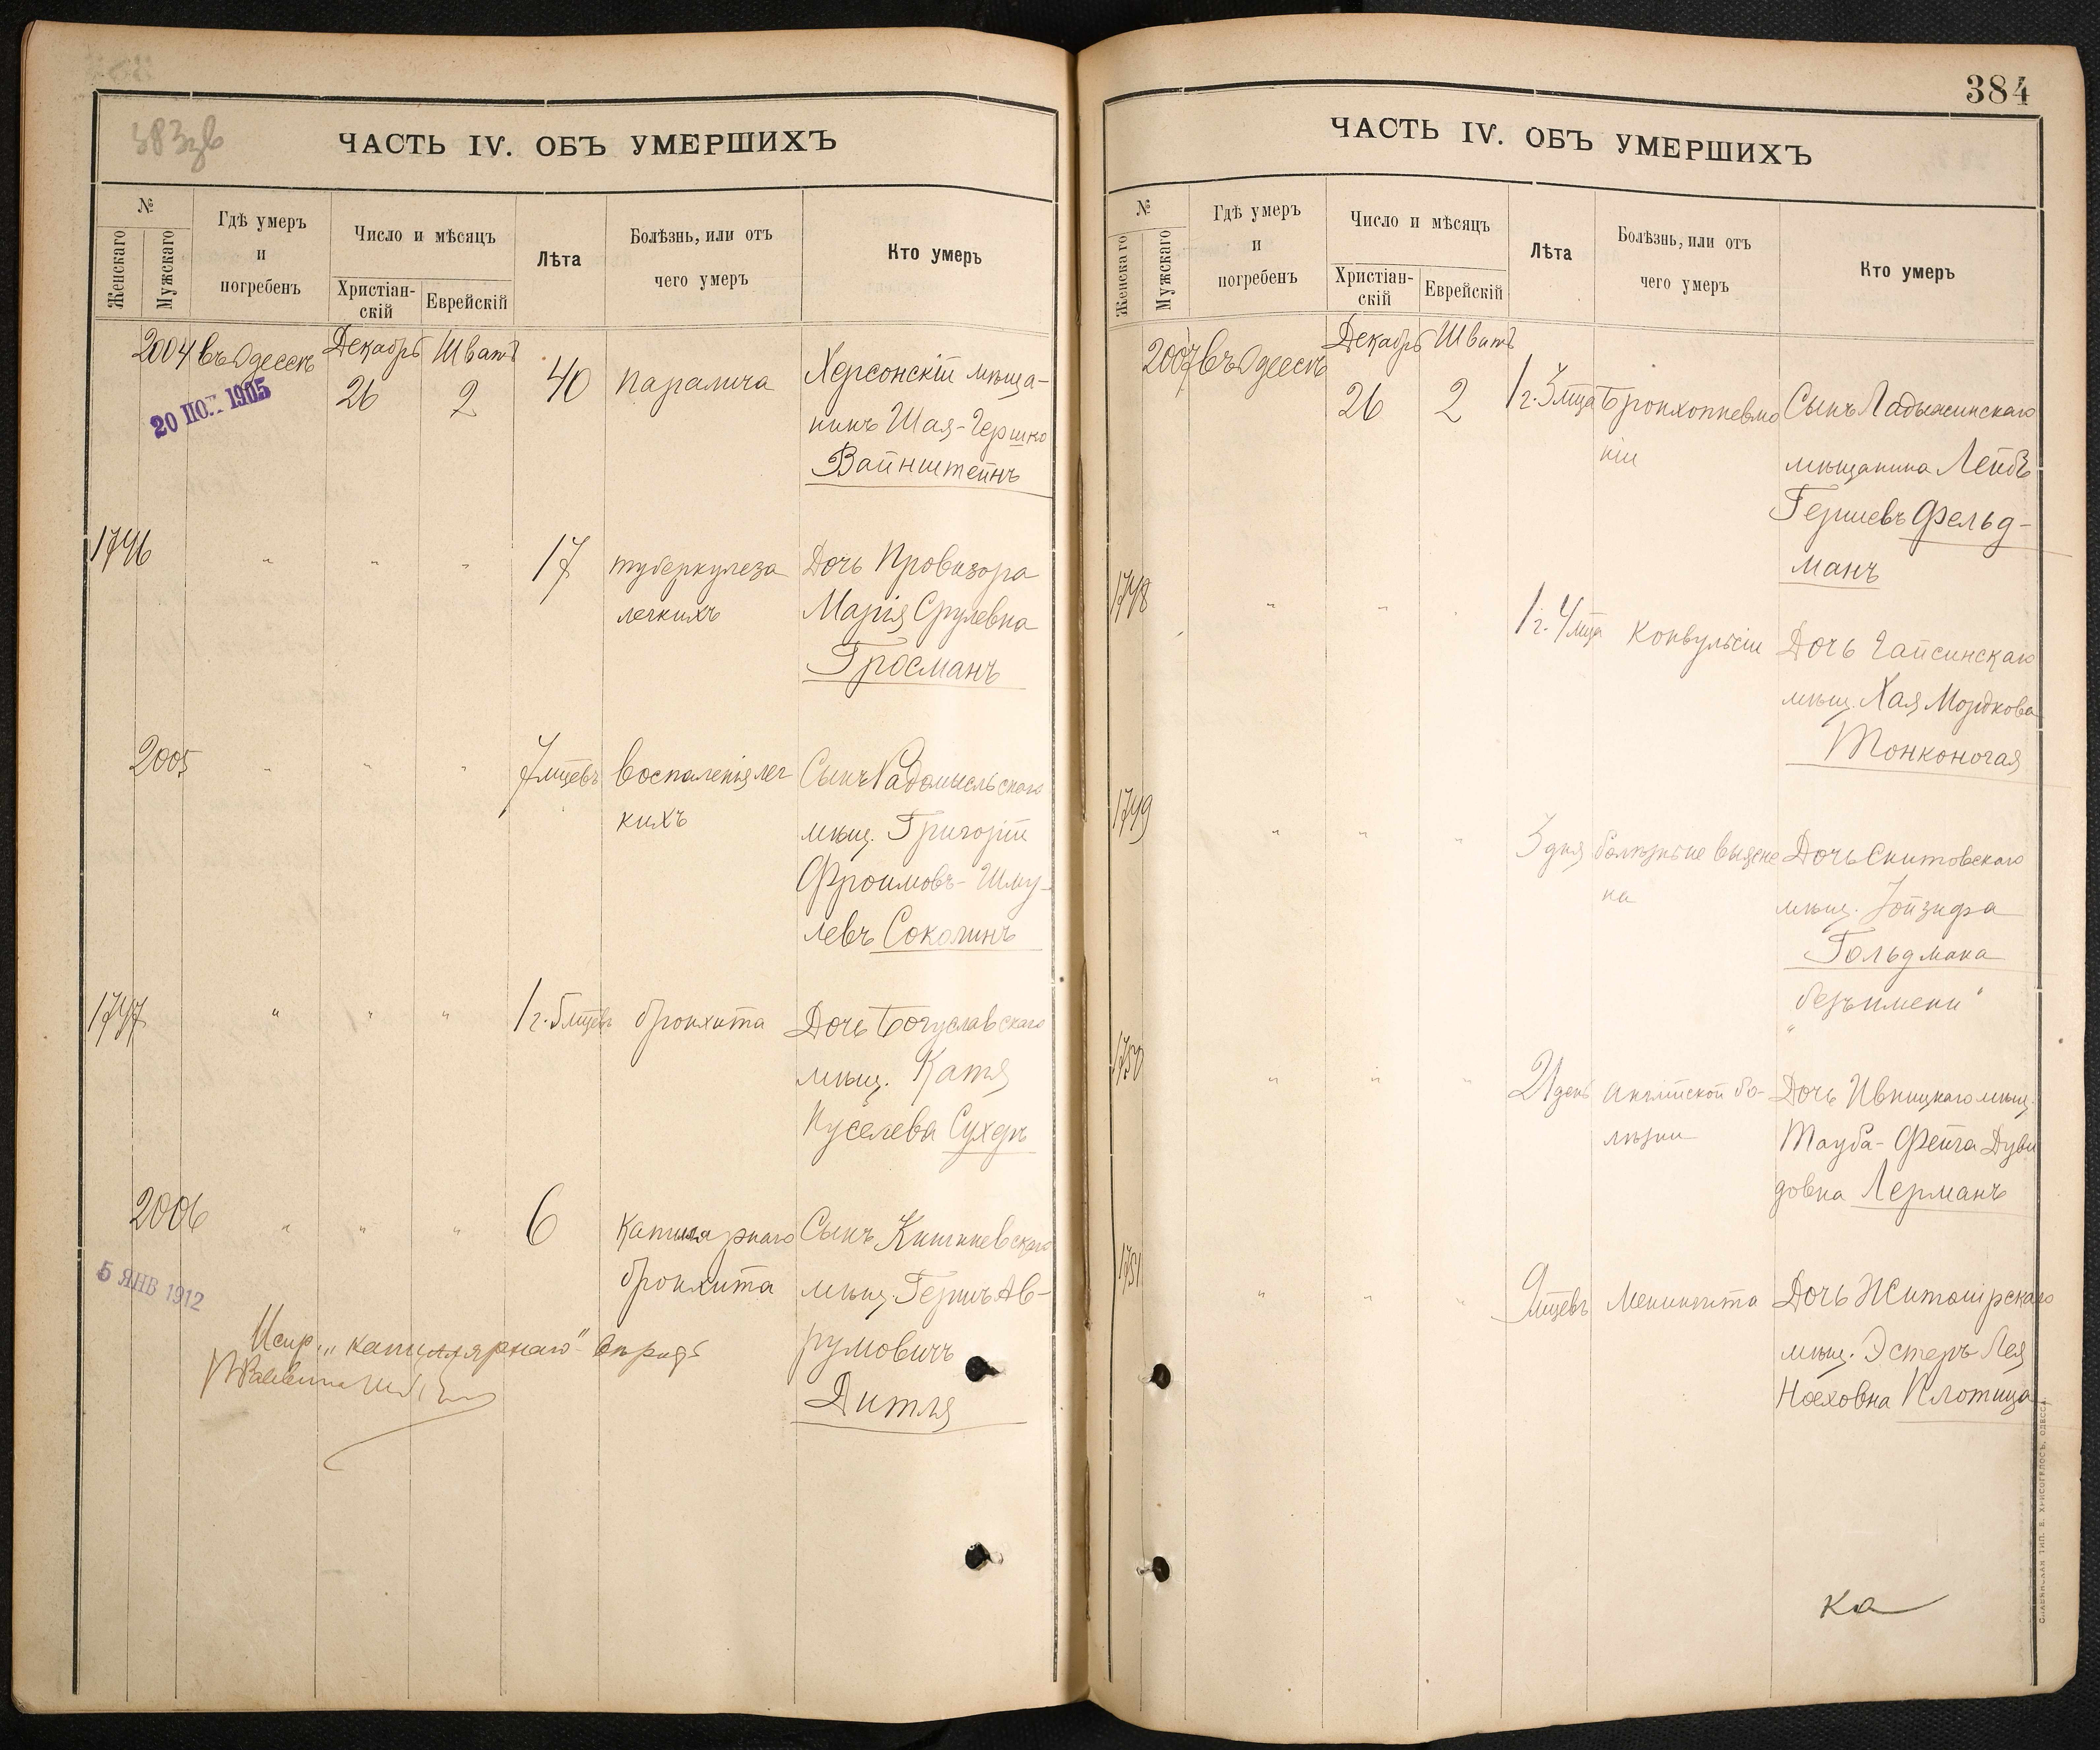 383 зв
ЧАСТЬ IV. ОБЪ УМЕРШИХЪ
№
Женскаго
Мужскаго
Гдѣ умеръ
и
погребенъ
Число и мѣсяцъ
Христіан-
скій
Еврейскій
Лѣта
Болѣзнь, или отъ
чего умеръ
Кто умеръ
2004 въ Одессѣ Декабрь Шватъ
26 2 40 паралича Херсонскій мѣща-
нинъ Шая-Гершко
Вайнштейнъ
20 1905
1746 " " " 17 туберкулеза Дочь Провизора
легкихъ Марія Срулевна
Гросманъ
2005 " " " 7 мцевъ воспаленія лег Сынъ Радомысльскаго
кихъ мѣщ. Григорій
Фроимовъ-Шму-
левъ Соколинъ
1747 " " " 1 г. 5 мцевъ бронхита Дочь Богуславскаго
мѣщ. Катя
Куселева Сухеръ
2006 " " " 6 Капиллярнаго Сынъ Кишиневскаго
бронхита мѣщ. Гершъ Ав-
румовичъ
Дитля
5 ЯНВ 1912
Испр. "капиллярнаго"
384
ЧАСТЬ IV. ОБЪ УМЕРШИХЪ
№
Женскаго
Мужскаго
Гдѣ умеръ
и
погребенъ
Число и мѣсяцъ
Христіан-
скій
Еврейскій
Лѣта
Болѣзнь, или отъ
чего умеръ
Кто умеръ
2007 въ Одессѣ Декабрь Шватъ
26 2 1 г. 3 мца Бронхопневмо Сынъ Ладыжинскаго
ніи мѣщанина Лейбъ
Гершевъ Фельд-
манъ
1748 " " " 1 г. 4 мца Конвульсіи Дочь Гайсинскаго
мѣщ. Хая Мордкова
Тонконогая
1749 " " " 3 дня болѣзнь не выясне Дочь Скитовскаго
на мѣщ.
Гольдмана
"безъ имени"
1750 " " " 21 день Англійской бо- Дочь Ивницкаго мѣщ.
лѣзни Тауба-Фейга Дуви
довна Лерманъ
1751 " " " 9 мцевъ Менингита Дочь Житомірскаго
мѣщ. Эстеръ Лея
Ноеховна Плотица
ка
СЛАВЯНСКАЯ ТИП. Е. ХРИСОГЕЛОСЪ, ОДЕССА.